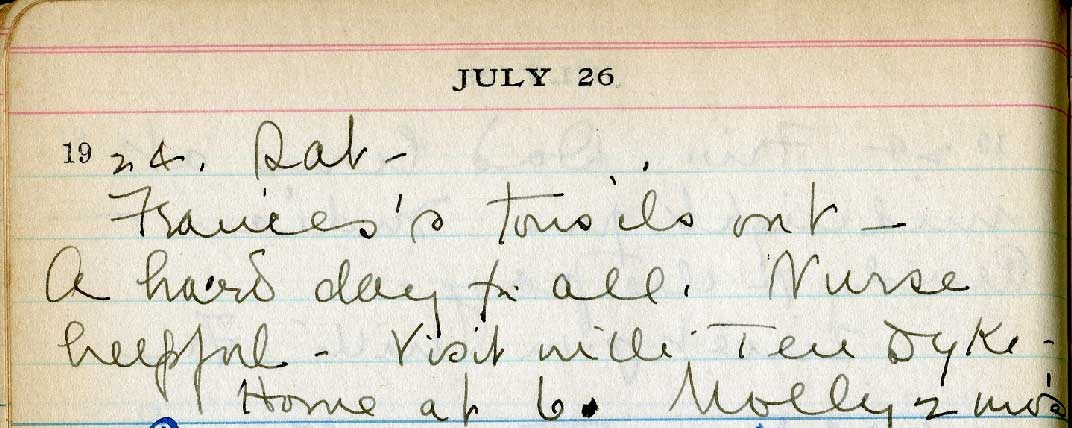 JULY 26
1924. Sat-
Frances's tonsils out -
A hard day for all. Nurse
helpful - Visit with Ten Dyke -
Home at 6. Molly 2 mos